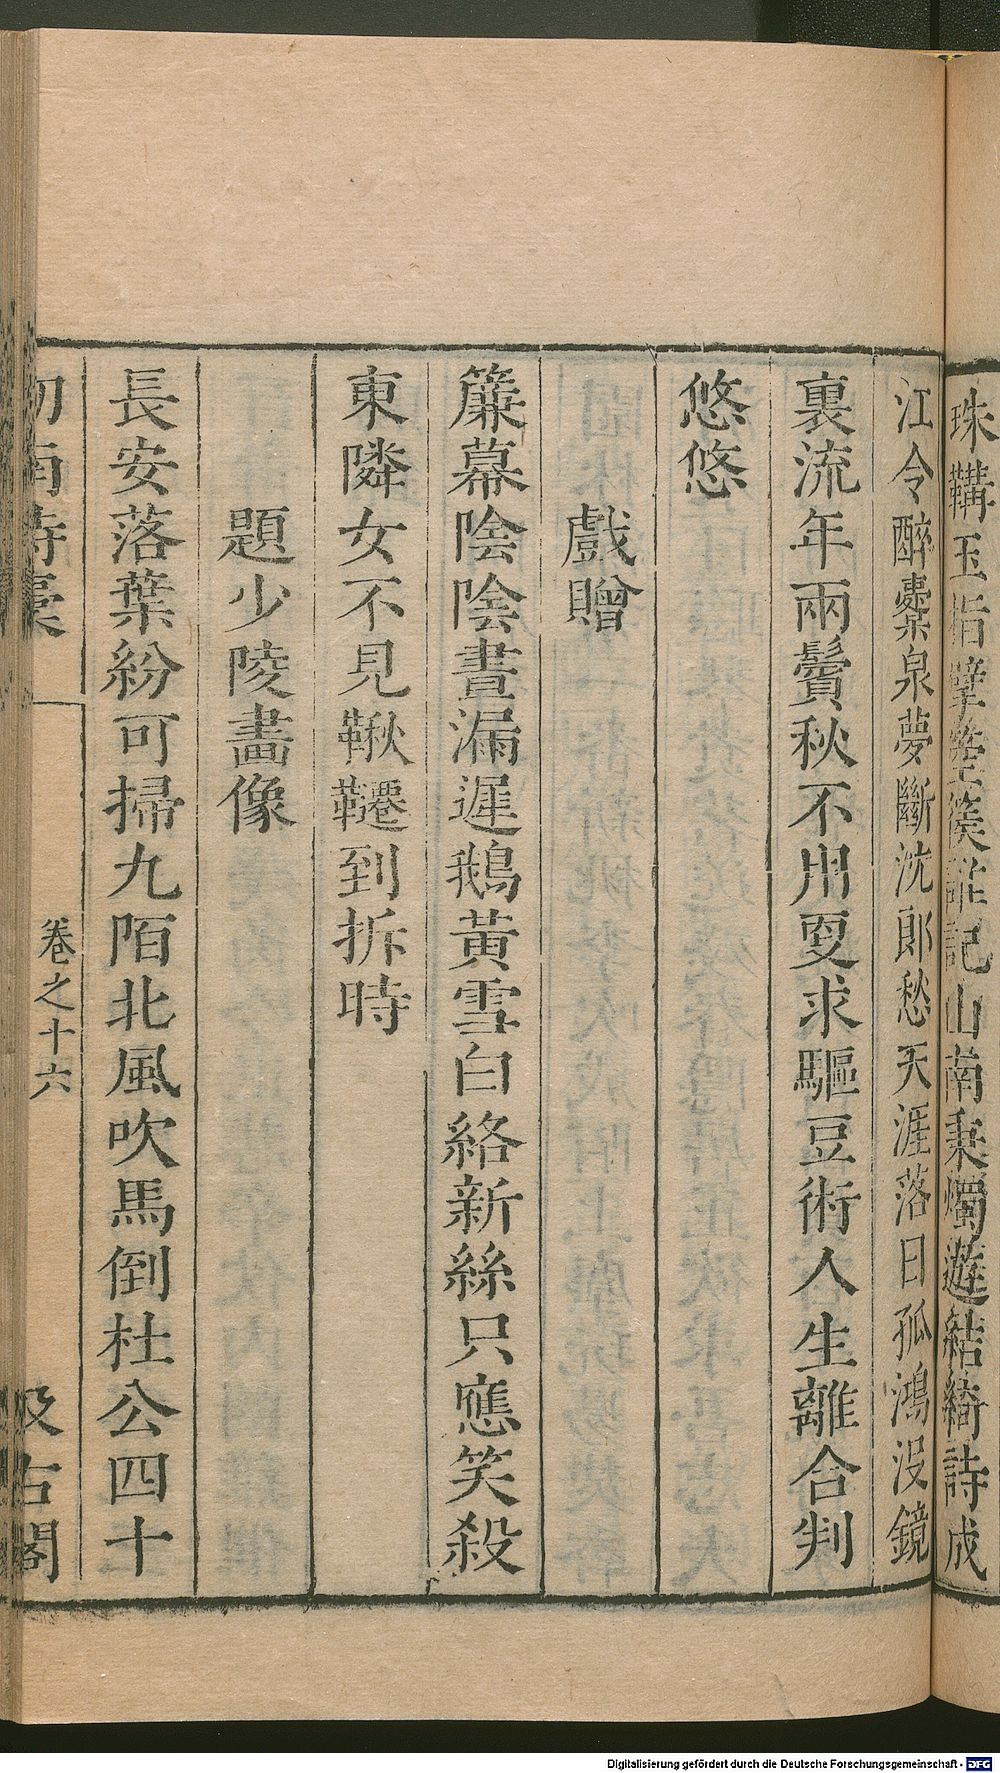 珠鞲玉指擘箜篌誰記山南秉燭遊結綺詩成
江令醉橐泉夢斷沈郎愁天涯落日孤鴻没鏡
裏流年兩鬢秋不用更求驅豆術人生離合判
悠悠
戲贈
簾幕陰陰晝漏遲鵝黄雪白絡新絲只應笑殺
東隣女不見鞦韆到拆時
題少陵畫像
長安落葉紛可掃九陌北風吹馬倒杜公四十
劒南詩藁
卷之十六
汲古閣
Digitalisierung gefördert durch die Deutsche Forschungsgemeinschaft - DFG